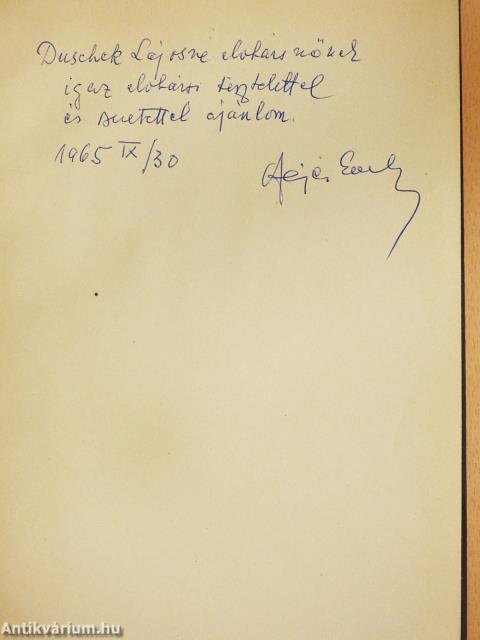 Duschek Lajosné elvtársnőnek
igaz elvtársi tisztelettel
és szeretettel ajánlom.
1965 IX/30
Antikvárium.hu